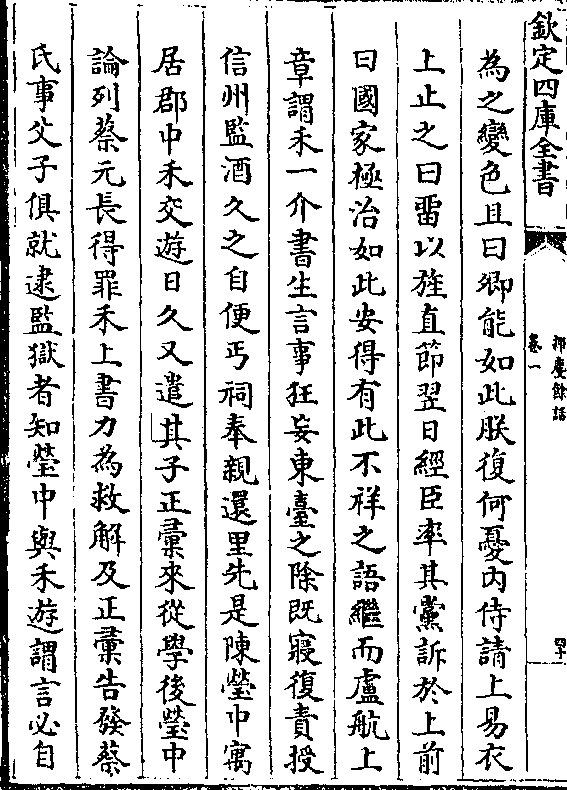 欽定四庫全書
揮麈餘話
卷一
四十
為之變色且曰卿能如此朕復何憂内侍請上易衣
上止之曰畱以旌直節翌日經臣率其黨訴於上前
曰國家極治如此安得有此不祥之語繼而盧航上
章謂禾一介書生言事狂妄東臺之除既寢復責授
信州監酒久之自便丐祠奉親還里先是陳瑩中寓
居郡中禾交遊日久又遣其子正彚來從學後瑩中
論列蔡元長得罪禾上書力為救解及正彚告發蔡
氏事父子俱就逮監獄者知瑩中與禾遊謂言必自